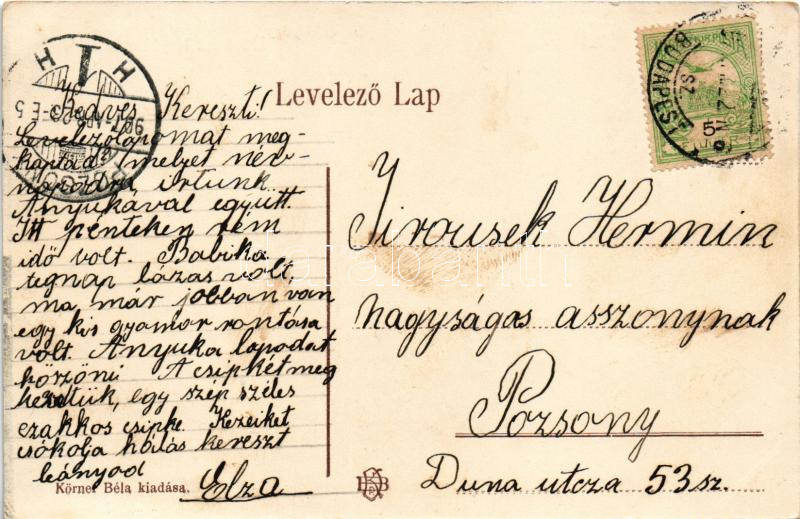 Levelező Lap
Kedves Kereszti!
Levelezőlapomat meg-
kaptad, melyet név-
napodra írtunk
Anyukával együtt.
Itt pénteken rém
idő volt. Babika
tegnap lázas volt,
ma már jobban van
egy kis gyomor rontása
volt. Anyuka lapodat
köszöni. A csipkét meg
vettük, egy szép széles
czakkos csipke. Kezeiket
csókolja hálás kereszt
leányod
Elza
Jirousek Hermin
nagyságos asszonynak
Pozsony
Duna utcza 53 sz.
Körner Béla kiadása.
BUDAPEST
5